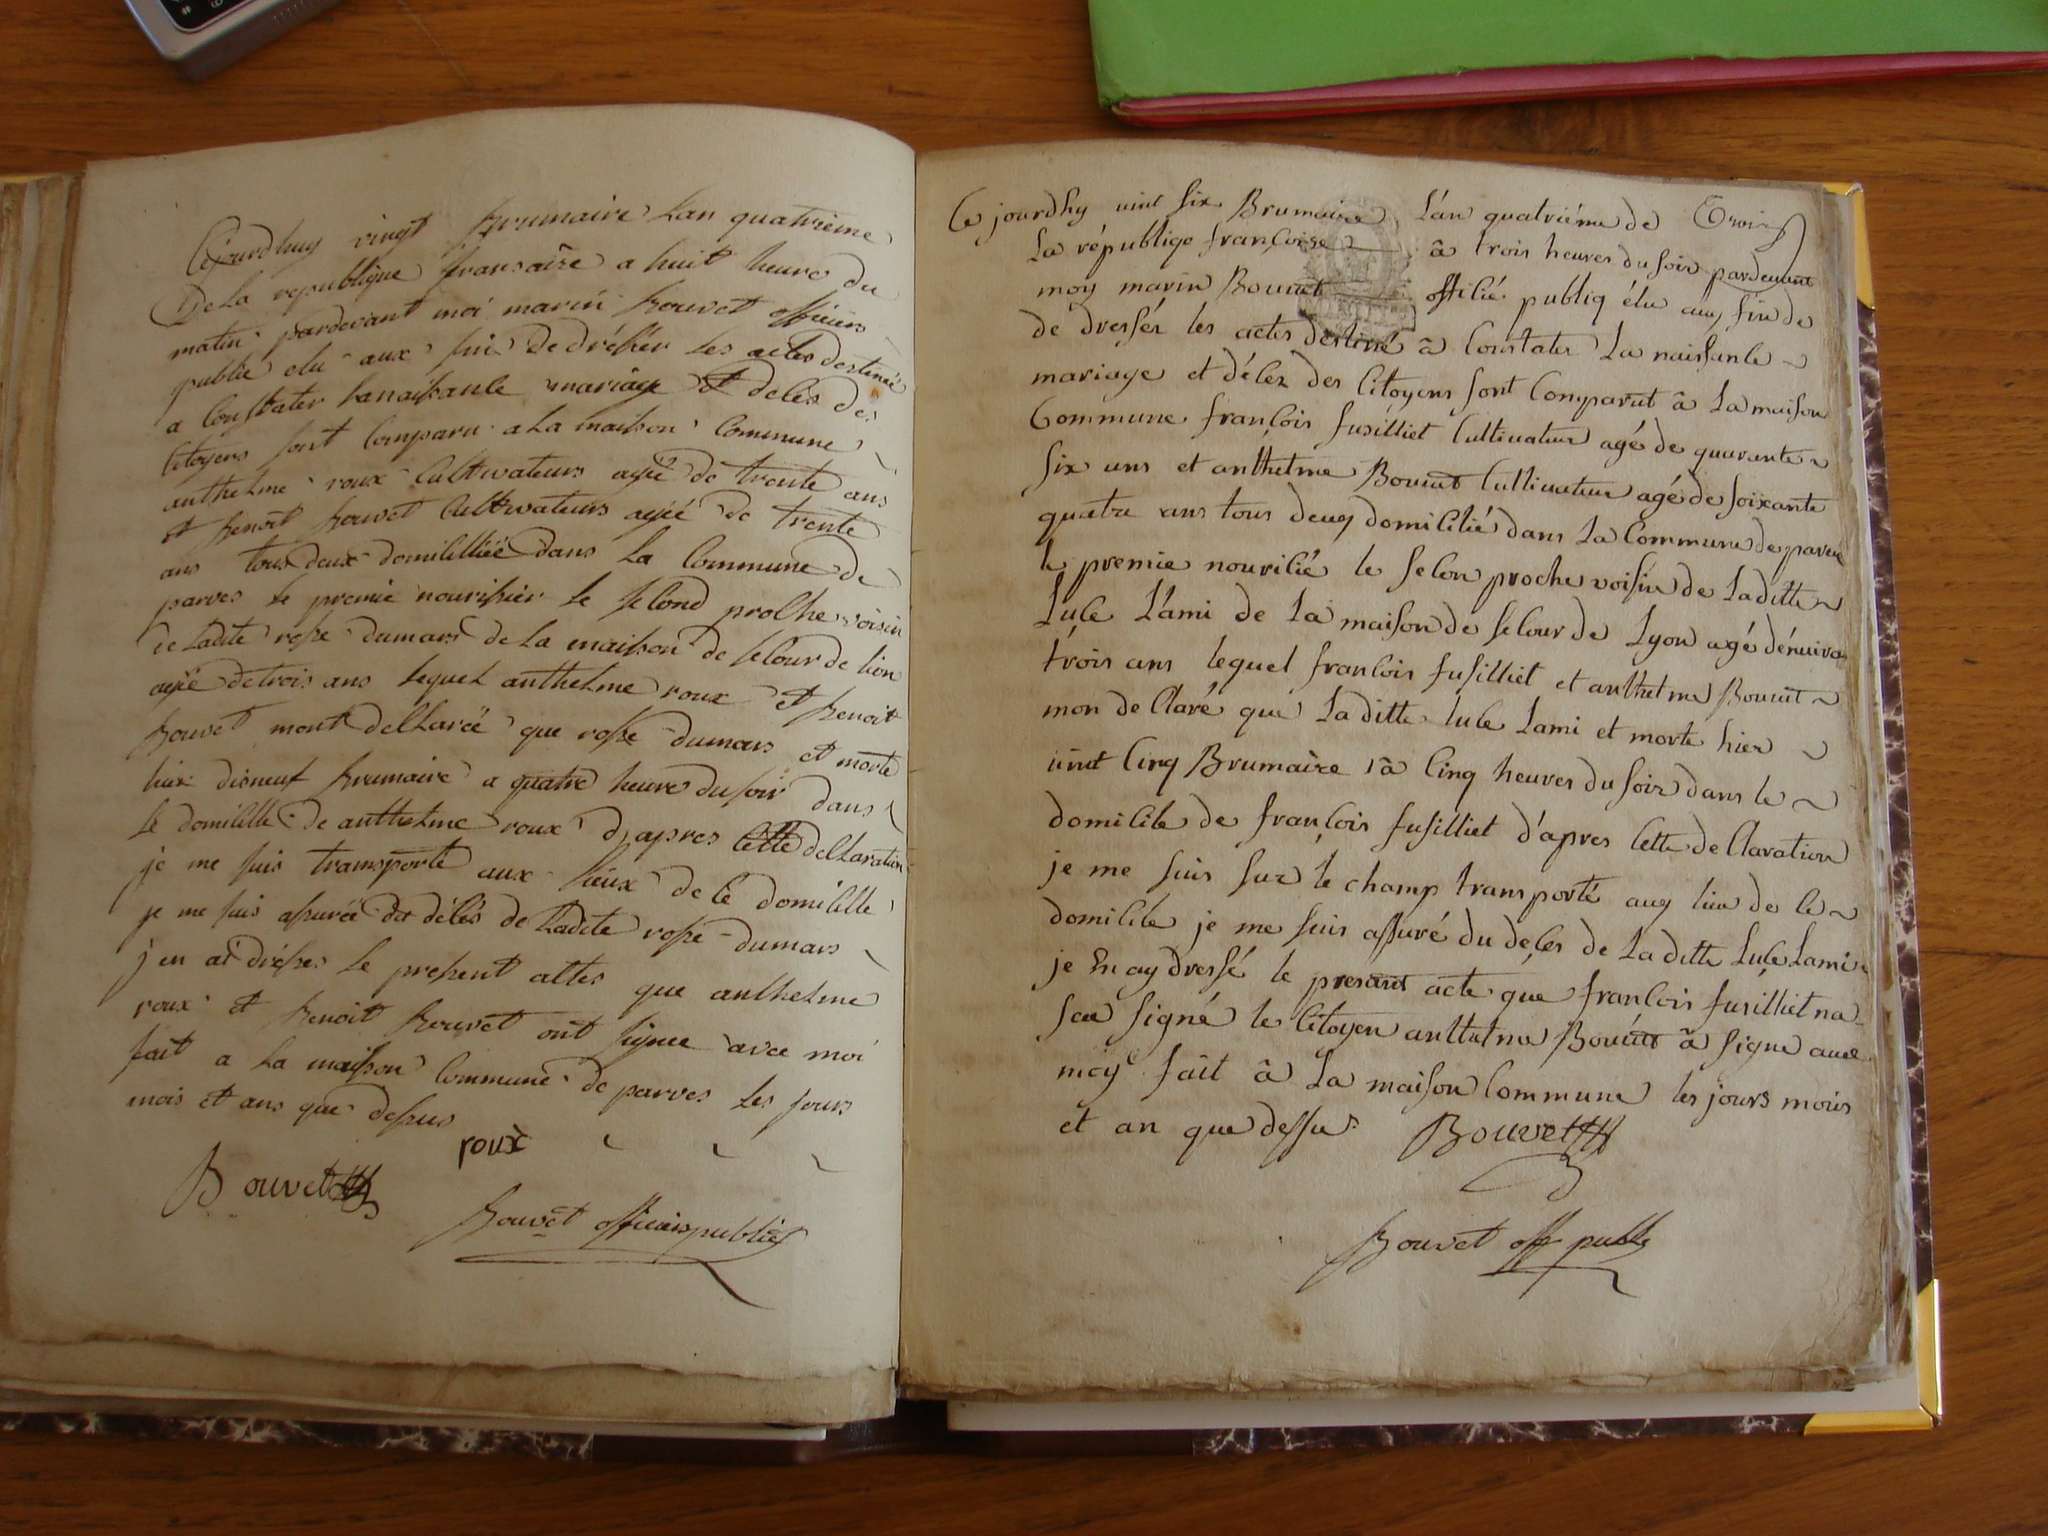 Cejourdhuy vingt brumaire lan quatrieme
De la republique fransaise a huit heure du
matin pardevant moi marin bouvet officiers
public elu aux fin de dresser les actes destinée
a constater lanaissance mariage et deces des
citoyens sont comparu a la maison commune
anthelme roux cultivateurs agée de trente ans
et benoit bouvet cultivateurs agée de trente
ans tous deux domicilliée dans la commune de
parves le premie nourissier le second proche voisin
de ladite rose dumars de la maison de secour de lion
agée de trois ans lequel anthelme roux et benoit
bouvet mont declarée que rose dumars et morte
hier disneuf brumaire a quatre heure du soir dans
le domicille de anthelme roux d apres cette declaration
je me suis transporté aux lieux de ce domicille
je me suis assurée du déces de ladite rose dumars
j en ai dresses le present actes que anthelme
roux et benoit bouvet ont signée avec moi
fait a la maison commune de parves les jours
mois et ans que dessus
roux
Bouvet
bouvet officiers public
Ce jourdhy vint six Brumaire L'an quatriéme de
La républiqe françoise â trois heures du soir pardevant
moy marin Bouvet officié publiq élu aux fin de
de dressér les actes destiné â constater La naissance
mariage et décez des citoyens sont comparut â La maison
commune françois fusilliet cultivateur agé de quarante
six ans et anthelme Bouvet cultivateur agé de soixante
quatre ans tous deux domicilié dans La commune de parve
le premie nouricié le secon proche voisin de Laditte
Luce L'ami de La maison de secour de Lyon agé dénviron
trois ans lequel françois fusilliet et anthelme Bouvet
mon declaré que Laditte luce Lami et morte hier
vint cinq Brumaire â cinq heures du soir dans le
domicile de françois fusilliet d'apres cette declaration
je me suis sur le champ transporté aux lieu de ce
domicile je me suis assuré du deces de La ditte Luce Lami
je En ay dressé le present acte que françois fusilliet na
sce signé le citoyen anthelme Bouvet â signe avec
moy fait â La maison commune les jours mois
et an que dessus Bouvet
Bouvet off public